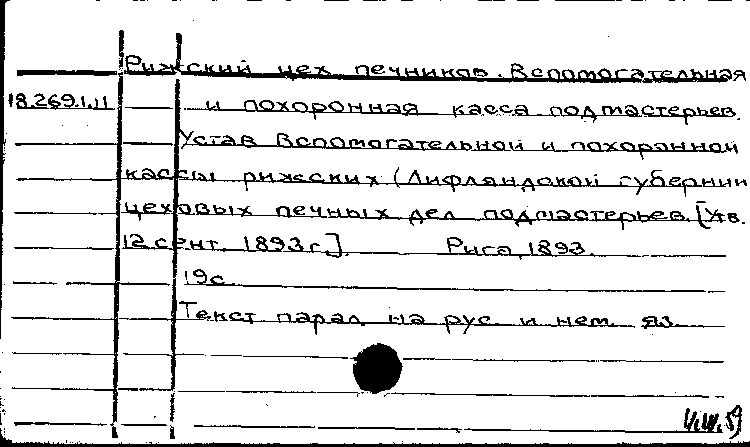 Рижский цех печников. Вспомогательная
18.269.1.11 и похоронная касса подмастерьев.
Устав Вспомогательной и похоронной
кассы рижских (Лифляндской губернии
цеховых печных дел подмастерьев. [Утв.
12 сент. 1893 г.] Рига, 1893.
19с.
Текст парал. на рус. и нем. яз.